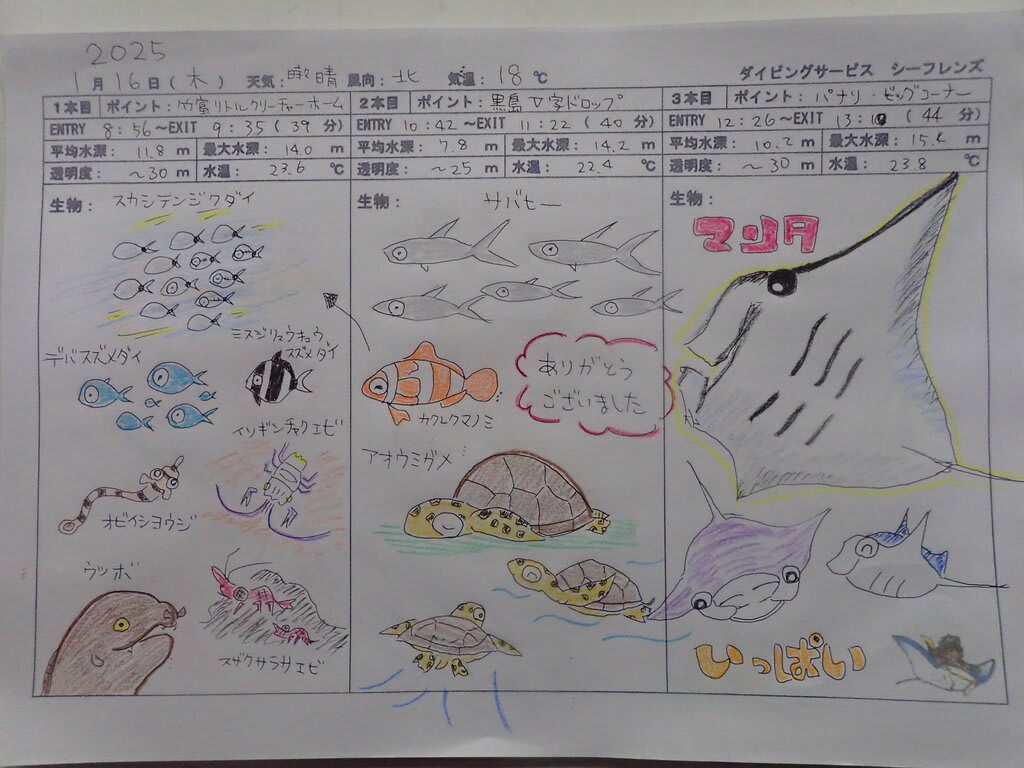 2025
1月16日(木) 天気:曇晴 風向:北 気温:18℃
ダイビングサービス シーフレンズ
1本目 ポイント:竹富リトルクリーチャーホーム
ENTRY 8:56~EXIT 9:35(39分)
平均水深: 11.8 m 最大水深: 14.0 m
透明度: ~30 m 水温: 23.6 ℃
生物: スカシテンジクダイ
デバスズメダイ
ミスジリュウキュウ
スズメダイ
イソギンチャクエビ
オビイシヨウジ
ウツボ
スザクサラサエビ
2本目 ポイント:黒島V字ドロップ
ENTRY 10:42~EXIT 11:22(40分)
平均水深: 7.8 m 最大水深: 14.2 m
透明度: ~25 m 水温: 22.4 ℃
生物: サバヒー
カクレクマノミ
ありがとう
ございました
アオウミガメ
3本目 ポイント:パナリ・ビッグコーナー
ENTRY 12:26~EXIT 13:10(44分)
平均水深: 10.2 m 最大水深: m
透明度: ~30 m 水温: 23.8 ℃
生物:
マンタ
いっぱい